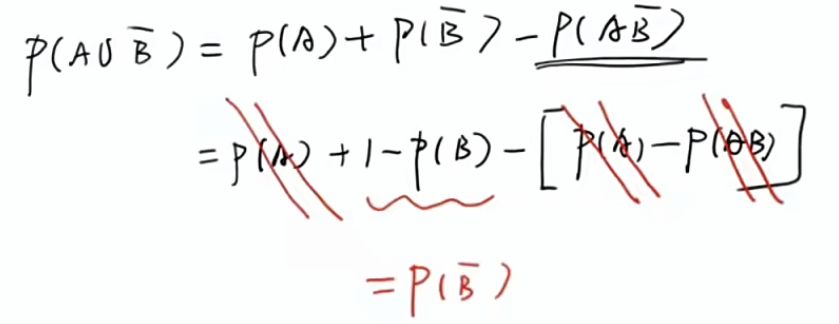 P(A∪B̅) = P(A) + P(B̅) - P(AB̅)
= P(A) + 1 - P(B) - [P(A) - P(AB)]
= P(B̅)